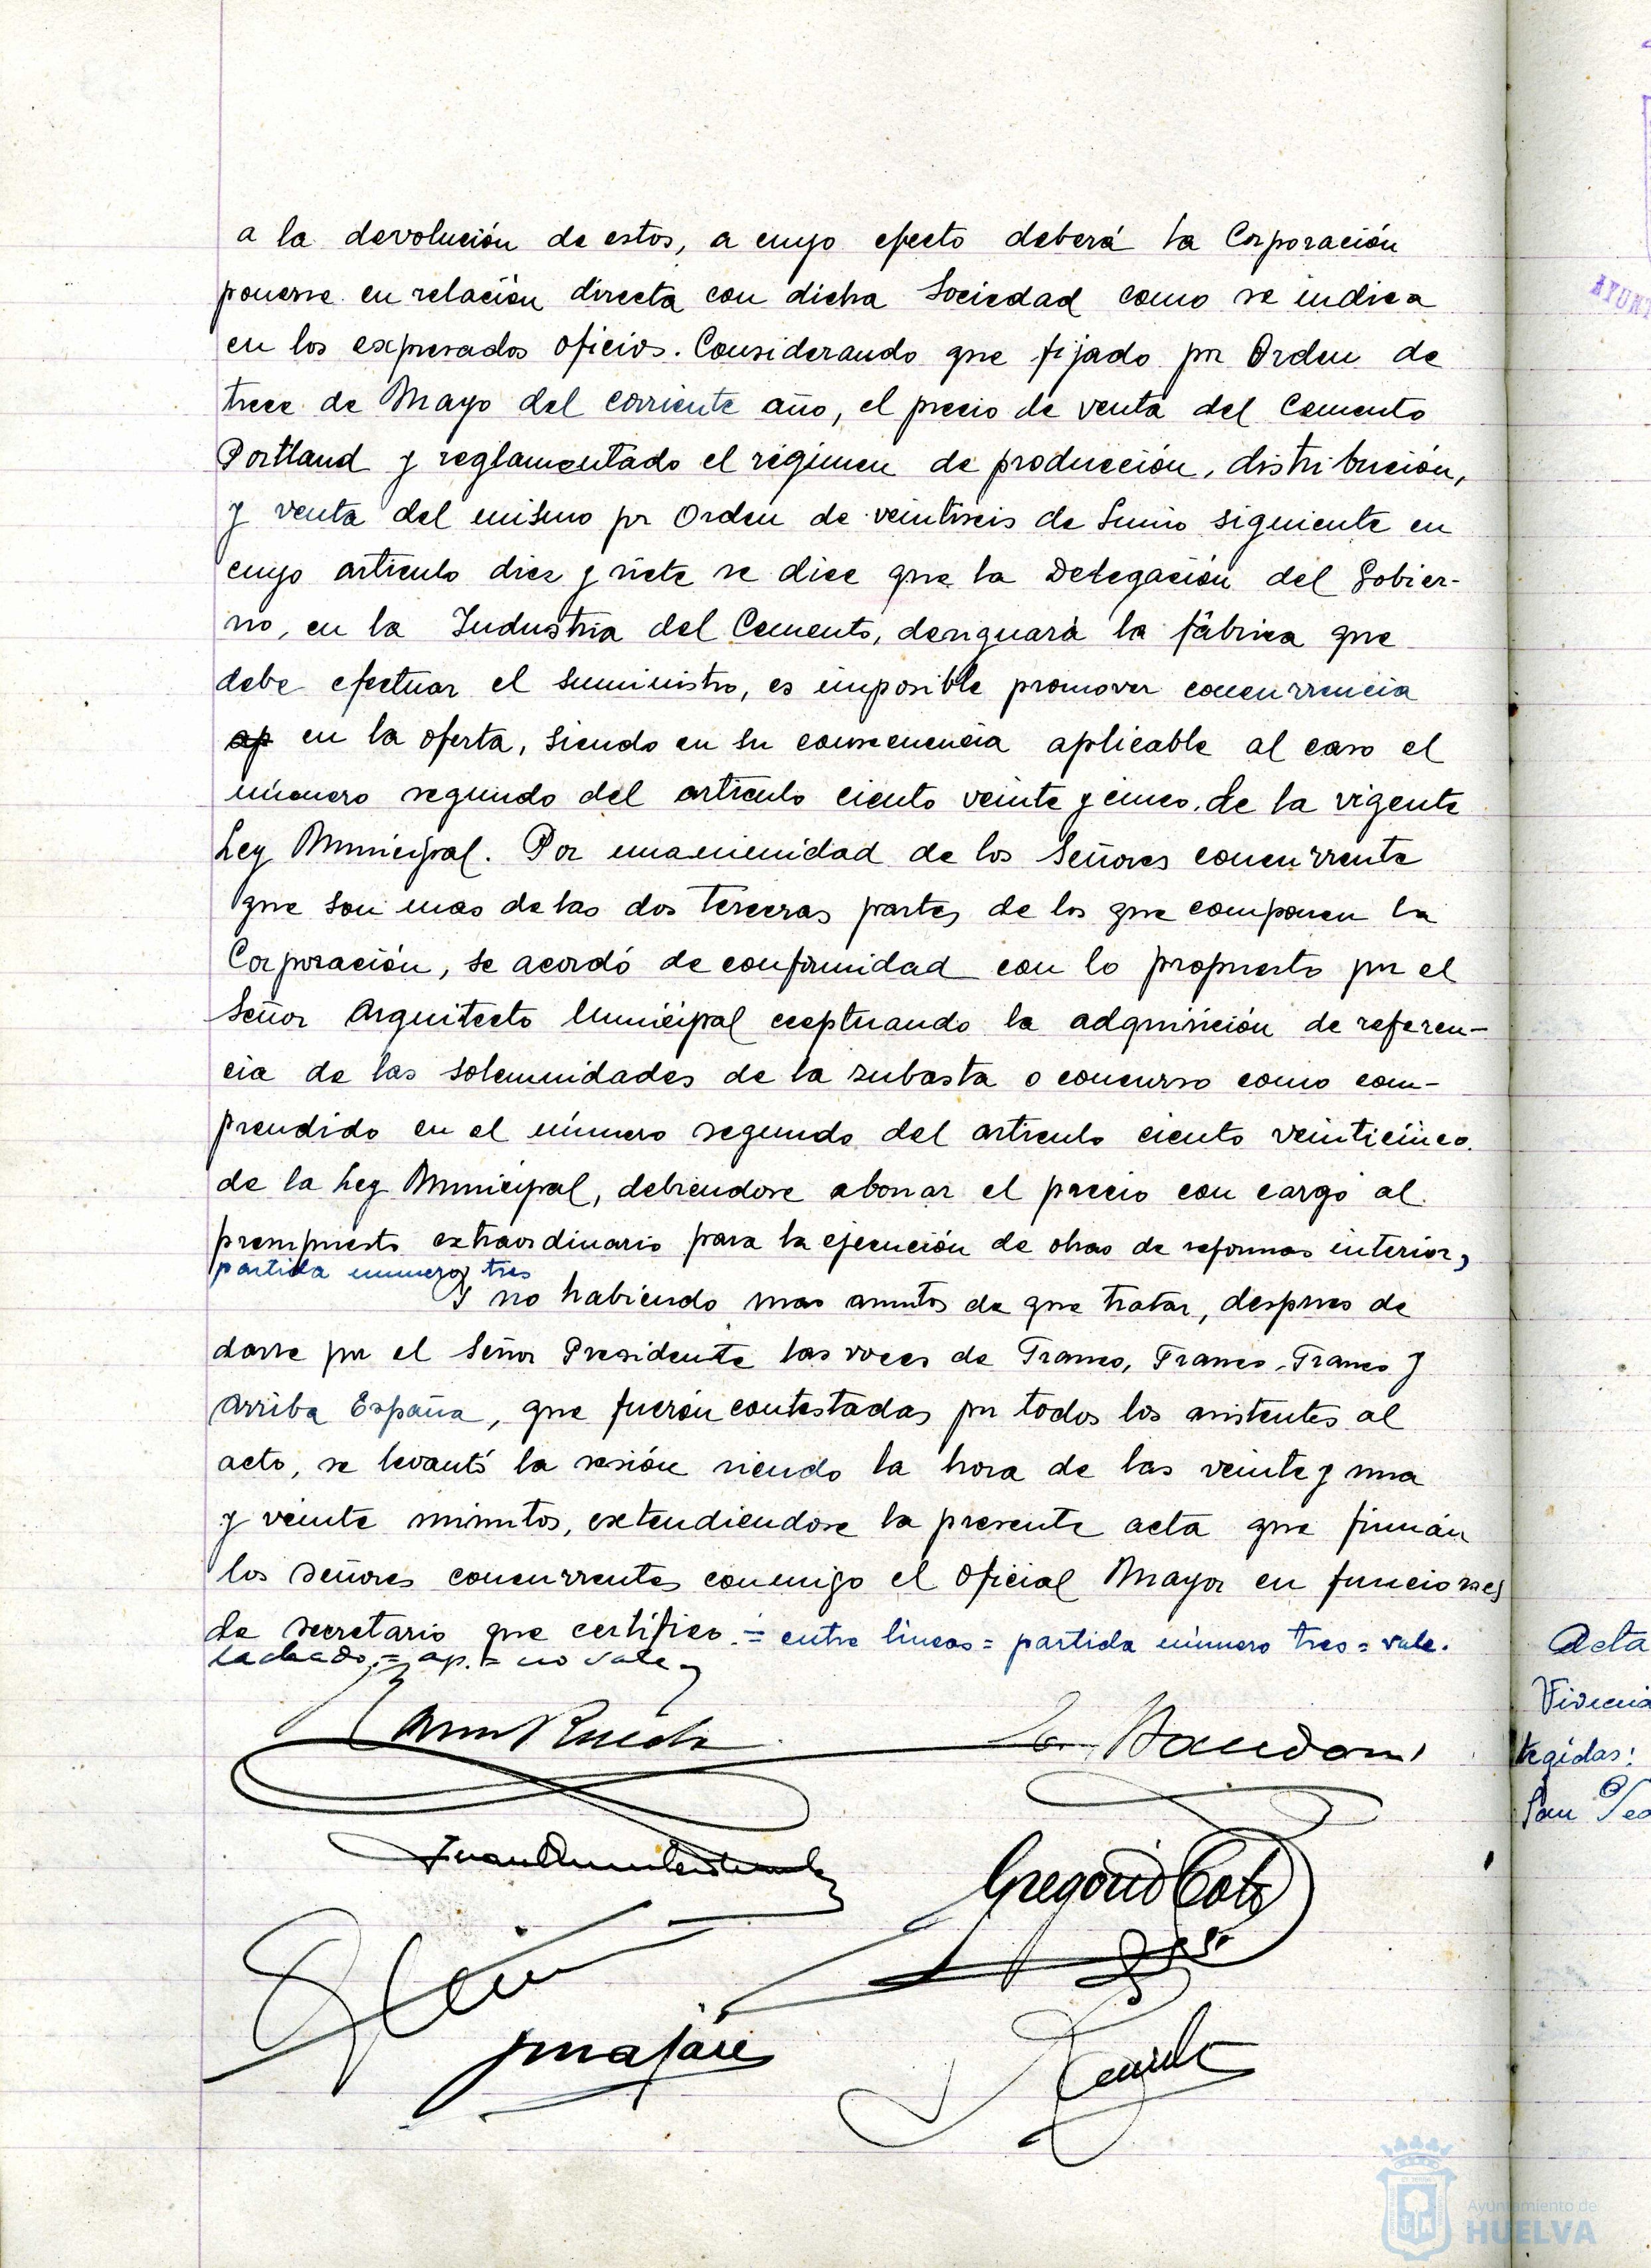 a la devolución de estos, a cuyo efecto deberá la Corporación
ponerse en relación directa con dicha Sociedad como se indica
en los expresados oficios. Considerando que fijado por Orden de
trece de Mayo del corriente año, el precio de venta del Cemento
Portland y reglamentado el régimen de producción, distribución,
y venta del mismo por Orden de veintiseis de Junio siguiente en
cuyo articulo diez y siete se dice que la Delegación del Gobier-
no, en la Industria del Cemento, designará la fábrica que
debe efectuar el suministro, es imposible promover concurrencia
ap en la oferta, siendo en su consecuencia aplicable al caso el
número segundo del articulo ciento veinte y cinco de la vigente
Ley Municipal. Por unanimidad de los Señores concurrente
que son mas de las dos terceras partes de los que componen la
Corporación, se acordó de conformidad con lo propuesto por el
Señor Arquitecto Municipal exeptuando la adquisición de referen-
cia de las solemnidades de la subasta o concurso como com-
prendido en el número segundo del articulo ciento veinticinco
de la Ley Municipal, debiendose abonar el precio con cargo al
presupuesto extraordinario para la ejecución de obras de reformas interior,
partida numero tres
Y no habiendo mas asuntos de que tratar, despues de
darse por el Señor Presidente las voces de Franco, Franco, Franco y
Arriba España, que fuerón contestadas por todos los asistentes al
acto, se levantó la sesión siendo la hora de las veinte y una
y veinte minutos, extendiendose la presente acta que firmán
los señores concurrentes conmigo el Oficial Mayor en funciones
de secretario que certifico. = entre lineas = partida número tres = vale.
tachado = ap. = no vale
Gregorio Coto
Acta
Viviendas
tegidas:
AYUNT
Ayuntamiento de
HUELVA